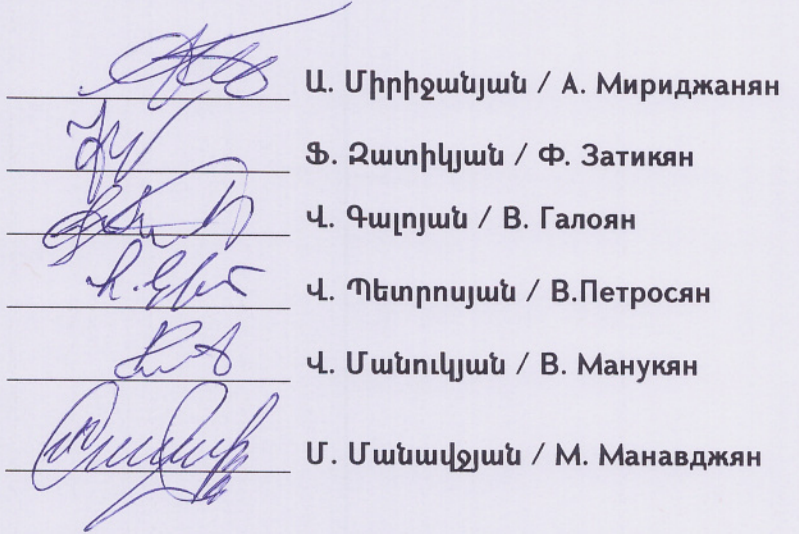 Ա. Միրիջանյան / А. Мириджанян
Ֆ. Զատիկյան / Ф. Затикян
Վ. Գալոյան / В. Галоян
Վ. Պետրոսյան / В.Петросян
Վ. Մանուկյան / В. Манукян
Մ. Մանավջյան / М. Манавджян